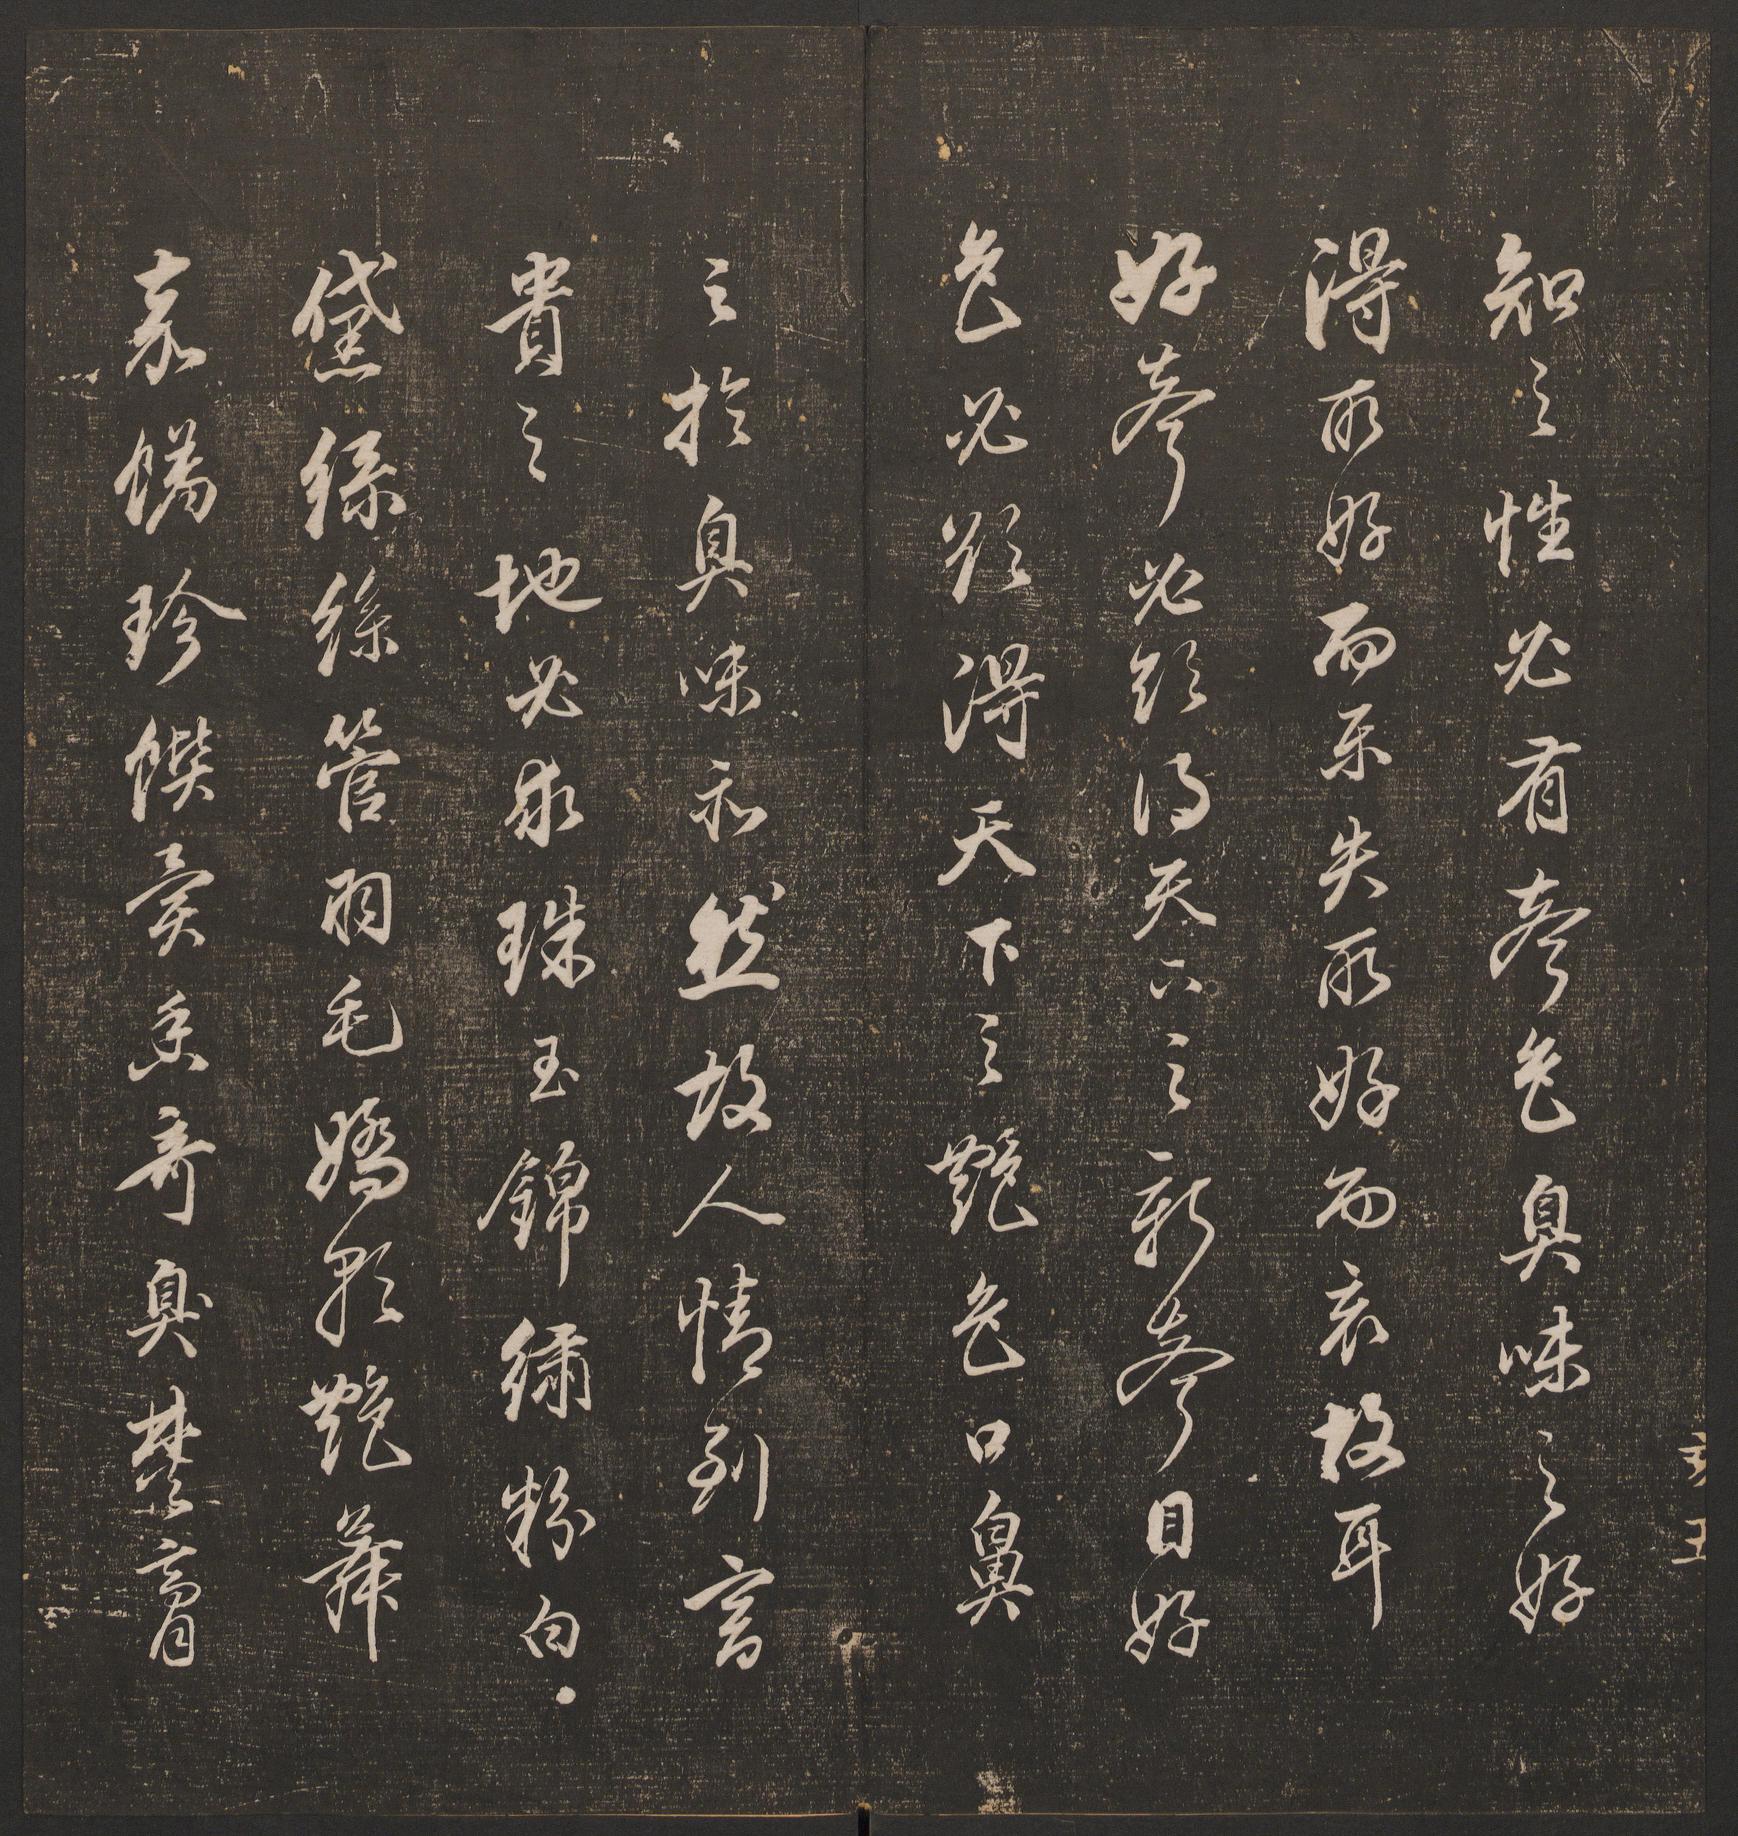 知之性必有聲色臭味之好
得所好而樂失所好而哀故耳
好聲必欲得天下之新聲目好
色必欲得天下之艷色口鼻
之於臭味亦然故人情到富
貴之地必求珠玉錦繡粉白
黛綠絲管羽毛嬌歌艷舞
嘉珍饌異香奇臭焚膏